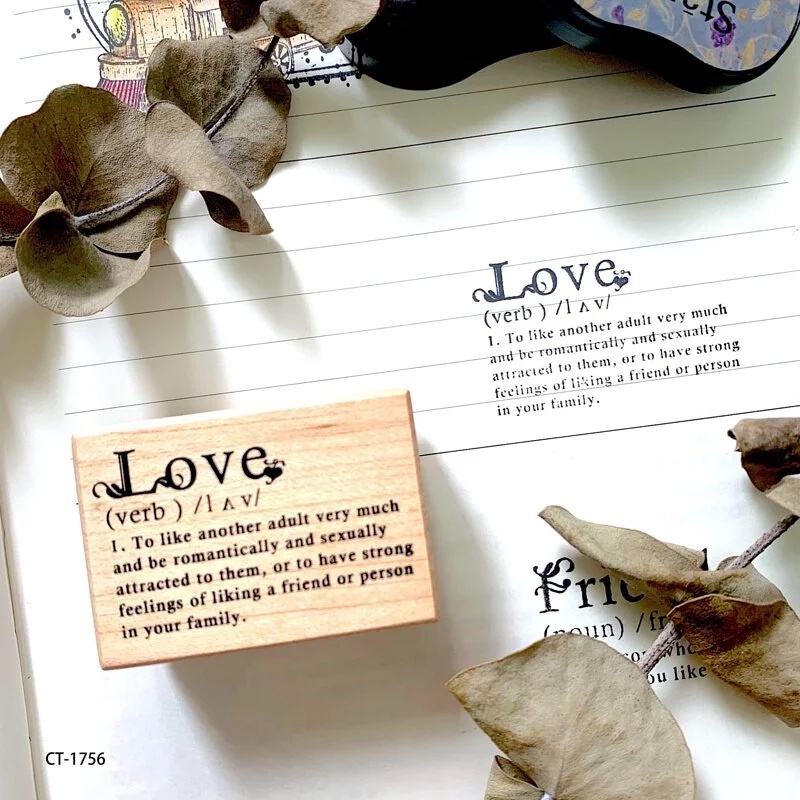 Stā
Love
(verb ) /l ʌ v/
1. To like another adult very much
and be romantically and sexually
attracted to them, or to have strong
feelings of liking a friend or person
in your family.
Love
(verb ) /l ʌ v/
1. To like another adult very much
and be romantically and sexually
attracted to them, or to have strong
feelings of liking a friend or person
in your family.
(noun) /fr
ou like
CT-1756